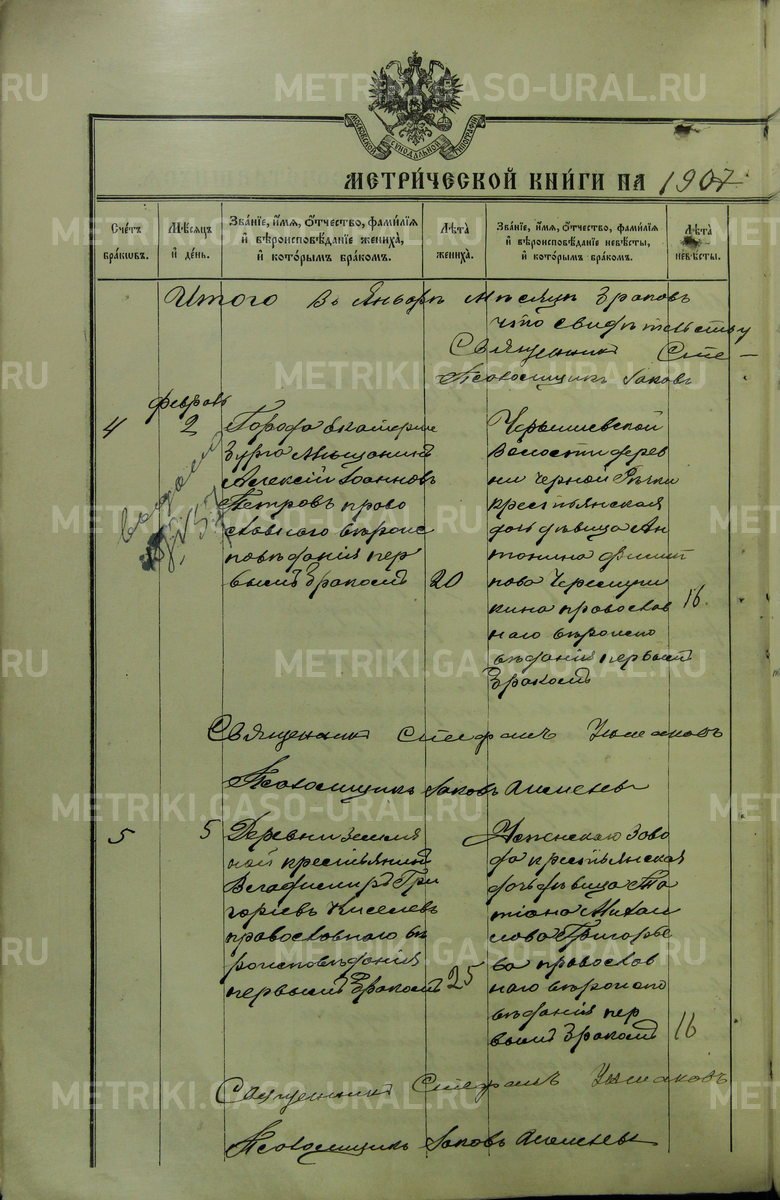 МОСКОВСКОЙ СѴНОДАЛЬНОЙ ТИПОГРАФІИ
МЕТРИ́ЧЕСКОЙ КНИ́ГИ НА 1907
Сче́тъ бра́ковъ.
Мѣ́сяцъ и҆ де́нь.
Зва́нїе, и҆́мя, ѻ҆́тчество, фами́лїя
и҆ вѣроисповѣ́данїе жениха̀,
и҆ кото́рымъ бра́комъ.
Лѣ́та жениха̀.
Зва́нїе, и҆́мя, ѻ҆́тчество, фами́лїя
и҆ вѣроисповѣ́данїе невѣ́сты,
и҆ кото́рымъ бра́комъ.
Лѣ́та невѣ́сты.
Итого Въ Январѣ Мѣсяцѣ браковъ
что свидѣтельству
Священникъ Сте-
Псаломщикъ Іаковъ
Февраль
4
2
Города Екатерин
бурга Мѣщанинъ
Алексій Іоанновъ
Петровъ право
славнаго вѣроис
повѣданія пер
вымъ бракомъ
20
Волости дерев
ни Черной Рѣчки
крестьянская
дочь дѣвица Ан
тонина Филип
пова
кина православ
наго вѣроиспо
вѣданія первымъ
бракомъ
16
Священникъ Стефанъ Ушаковъ
Псаломщикъ Іаковъ
5
5
Деревни Земля
ной крестьянинъ
Владимиръ Гри
горьевъ Киселевъ
православнаго вѣ
роисповѣданія
первымъ бракомъ
25
Успенскаго заво
да крестьянская
дочь дѣвица Та
тіана Михаи
лова Григорье
ва православ
наго вѣроиспо
вѣданія пер
вымъ бракомъ
16
Священникъ Стефанъ Ушаковъ
Псаломщикъ Іаковъ
METRIKI.GASO-URAL.RU